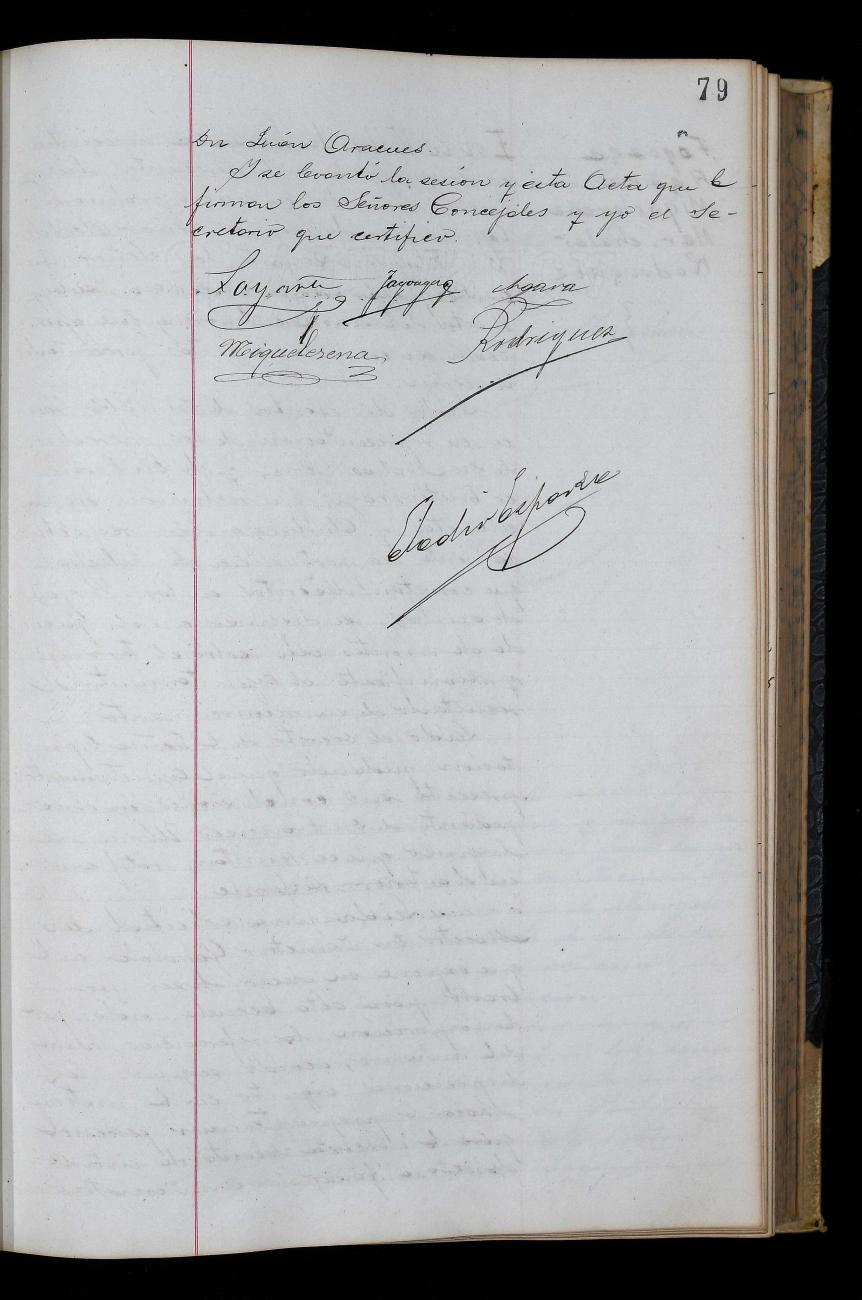 79
Dn Juan Aracues.
Y se levantó la sesion y esta Acta que la
firman los Señores Concejales y yo el Se-
cretario que certifico.
Layarte Fayanas
Miquelerena Rodriguez
Eladio Esparza